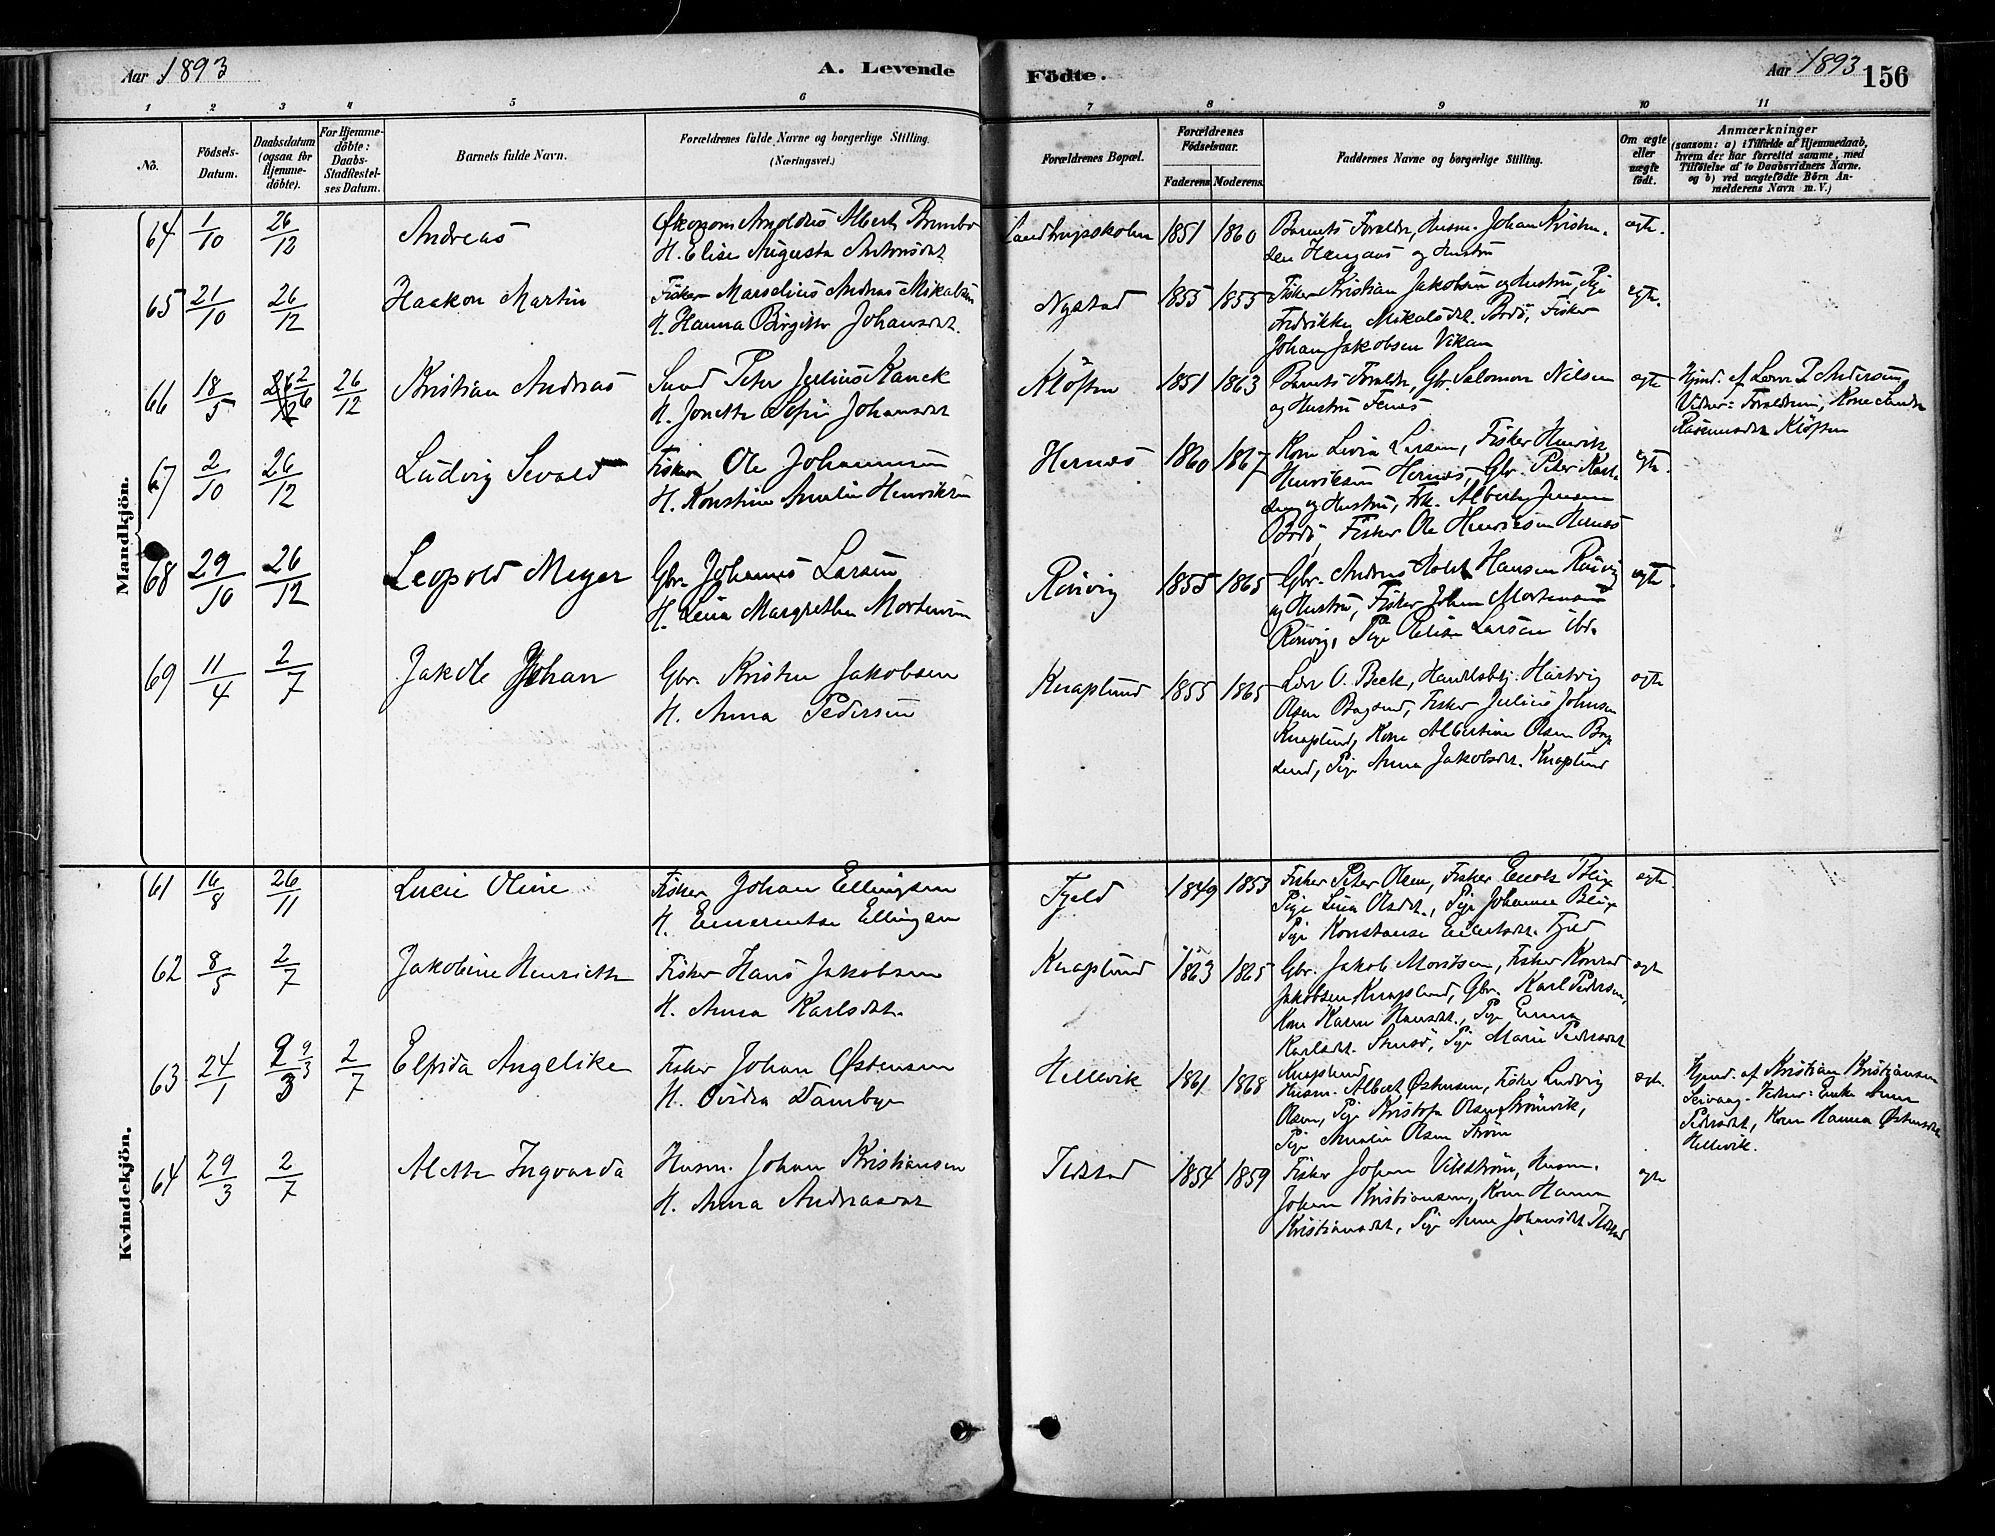 Aar 1893 A. Levende
Födte. Aar 1893 156
1 2 3 4 5 6 7 8 9 10 11
Nö.
Födsels-
Datum.
Daabsdatum
(ogsaa for
Hjemme-
döbte).
For Hjemme-
döbte:
Daabs-
Stadfæstel-
ses Datum.
Barnets fulde Navn.
Forældrenes fulde Navne og borgerlige Stilling.
(Næringsvei.)
Forældrenes Bopæl.
Forældrenes
Födselsaar.
Faderens. Moderens.
Faddernes Navne og borgerlige Stilling.
Om ægte
eller
uægte
födt.
Anmærkninger
(saasom: a) i Tilfælde af Hjemmedaab,
hvem der har forrettet samme, med
Tilföielse af to Daabsvidners Navne.
og b) ved uægtefödte Börn An-
melderens Navn m. V.)
Mandkjön.
64 1/10 26/12 Andreas
Økonom Arnoldus Albert
H. Elise Augusta Antonsdat.
1851 1860
Barnets Forældre, Husm. Johan Kristen-
sen og Hustru
ægte.
65 21/10 26/12 Haakon Martin
Fisker Marselius Andreas Mikalsen
H. Hanna Birgitte Johansdat.
Nystad 1855 1855
Fisker Kristian Jakobsen og Hustru, Pige
Fredrikke Mikalsdat. Bodö, Fisker
Johan Jakobsen Vikan
ægte.
66 18/5 2/6 26/12 Kristian Andreas
Peter Julius Kanck
H. Jonette Sofie Johansdat
Klöften 1851 1863
Barnets Forældre, Gbr. Salomon Nilsen
og Hustru Fenes
ægte
Hjmd. af Lærer P. Andersen,
Vidner: Forældrene, Kone
Rasmusdat. Klöften
67 2/10 26/12 Ludvig Sevald
Fisker Ole Johannesen
H. Konstine Amalie Henriksen
Hernæs 1860 1867
Kone Lovise Larsen, Fisker Henrik
Henriksen Hernæs, Gbr. Peter Karl-
sen og Hustru, Frk. Alberte Jensen
Bodö, Fisker Ole Henriksen Hernæs
ægte.
68 29/10 26/12 Leopold Meyer
Gbr. Johannes Larsen
H. Lena Margrethe Mortensen
Rönvig 1855 1865
Gbr. Andreas Holst Hansen Rönvig
og Hustru, Fisker Johan Mortensen
Rönvig, Pige Elise Larsen ibd.
ægte.
69 11/4 2/7 Jakole Johan
Gbr. Kristen Jakobsen
H. Anna Pedersen
Knaplund 1855 1865
Lærer O. Beck, Handelsbtj. Hartvig
Olsen Bogsund, Fisker Julius Johnsen
Knaplund, Kone Albertine Olsen Bog-
sund, Pige Anna Jakobsdat. Knaplund
ægte
Kvindekjön.
61 16/8 26/11 Lucie Oline
Fisker Johan Ellingsen
H. Emerentse Ellingsen
Fjeld 1849 1853
Fisker Peter Olsen, Fisker Enok Blix
Pige Lina Olsdat., Pige Johanna Blix
Pige Konstanse Eilertsdat. Fjeld
ægte.
62 8/5 2/7 Jakobine Henriette
Fisker Hans Jakobsen
H. Anna Karlsdat.
Knaplund 1863 1865
Gbr. Jakob Moritsen, Fisker Konrad
Jakobsen Knaplund, Gbr. Karl Pedersen,
Kone Karen Hansdat., Pige Emma
Karlsdat. Snusö, Pige Marie Pedersdat
Knaplund
ægte
63 24/1 9/3 2/7 Elfrida Angelike
Fisker Johan Østensen
H. Ovidia Dambye
Hellevik 1861 1868
Husm. Albert Østensen, Fisker Ludvig
Olsen, Pige Kristofa Olsen Strömvik,
Pige Amalie Olsen Ström
ægte.
Hjmd. af Kristian Kristiansen
Seivaag. Vidner: Enke Anne
Pedersdat, Kone Hanna Østensdat
Hellevik.
64 29/3 2/7 Alette Ingvarda
Husm. Johan Kristiansen
H. Anna Andreasdat
Seistad 1854 1859
Fisker Johan Vikström, Husm.
Johan Kristiansen, Kone Hanna
Kristiansdat., Pige Anna Johansdat.
ægte